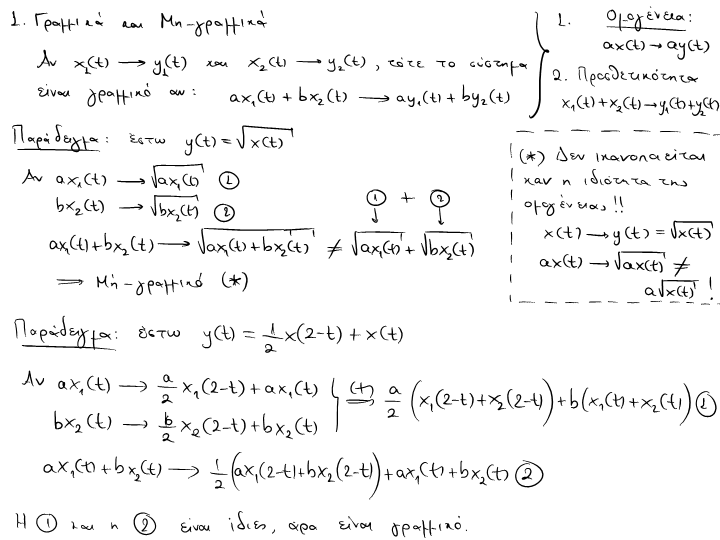 1. Γραμμικά και Μη-γραμμικά
Αν x₁(t) → y₁(t) και x₂(t) → y₂(t), τότε το σύστημα
είναι γραμμικό αν: ax₁(t) + bx₂(t) → ay₁(t) + by₂(t)
1. Ομογένεια:
ax(t) → ay(t)
2. Προσθετικότητα
x₁(t) + x₂(t) → y₁(t) + y₂(t)
Παράδειγμα: έστω y(t) = √x(t)
Αν ax₁(t) → √ax₁(t) ①
bx₂(t) → √bx₂(t) ②
① + ②
ax₁(t) + bx₂(t) → √ax₁(t) + bx₂(t) ≠ √ax₁(t) + √bx₂(t)
⟹ Μη-γραμμικό (*)
(*) Δεν ικανοποιείται
καν η ιδιότητα της
ομογένειας!!
x(t) → y(t) = √x(t)
ax(t) → √ax(t) ≠
a√x(t) !
Παράδειγμα: έστω y(t) = 1/2 x(2-t) + x(t)
Αν ax₁(t) → a/2 x₁(2-t) + ax₁(t) (+)⟹ a/2 (x₁(2-t) + x₂(2-t)) + b(x₁(t) + x₂(t)) ①
bx₂(t) → b/2 x₂(2-t) + bx₂(t)
ax₁(t) + bx₂(t) → 1/2 (ax₁(2-t) + bx₂(2-t)) + ax₁(t) + bx₂(t) ②
Η ① και η ② είναι ίδιες, άρα είναι γραμμικό.